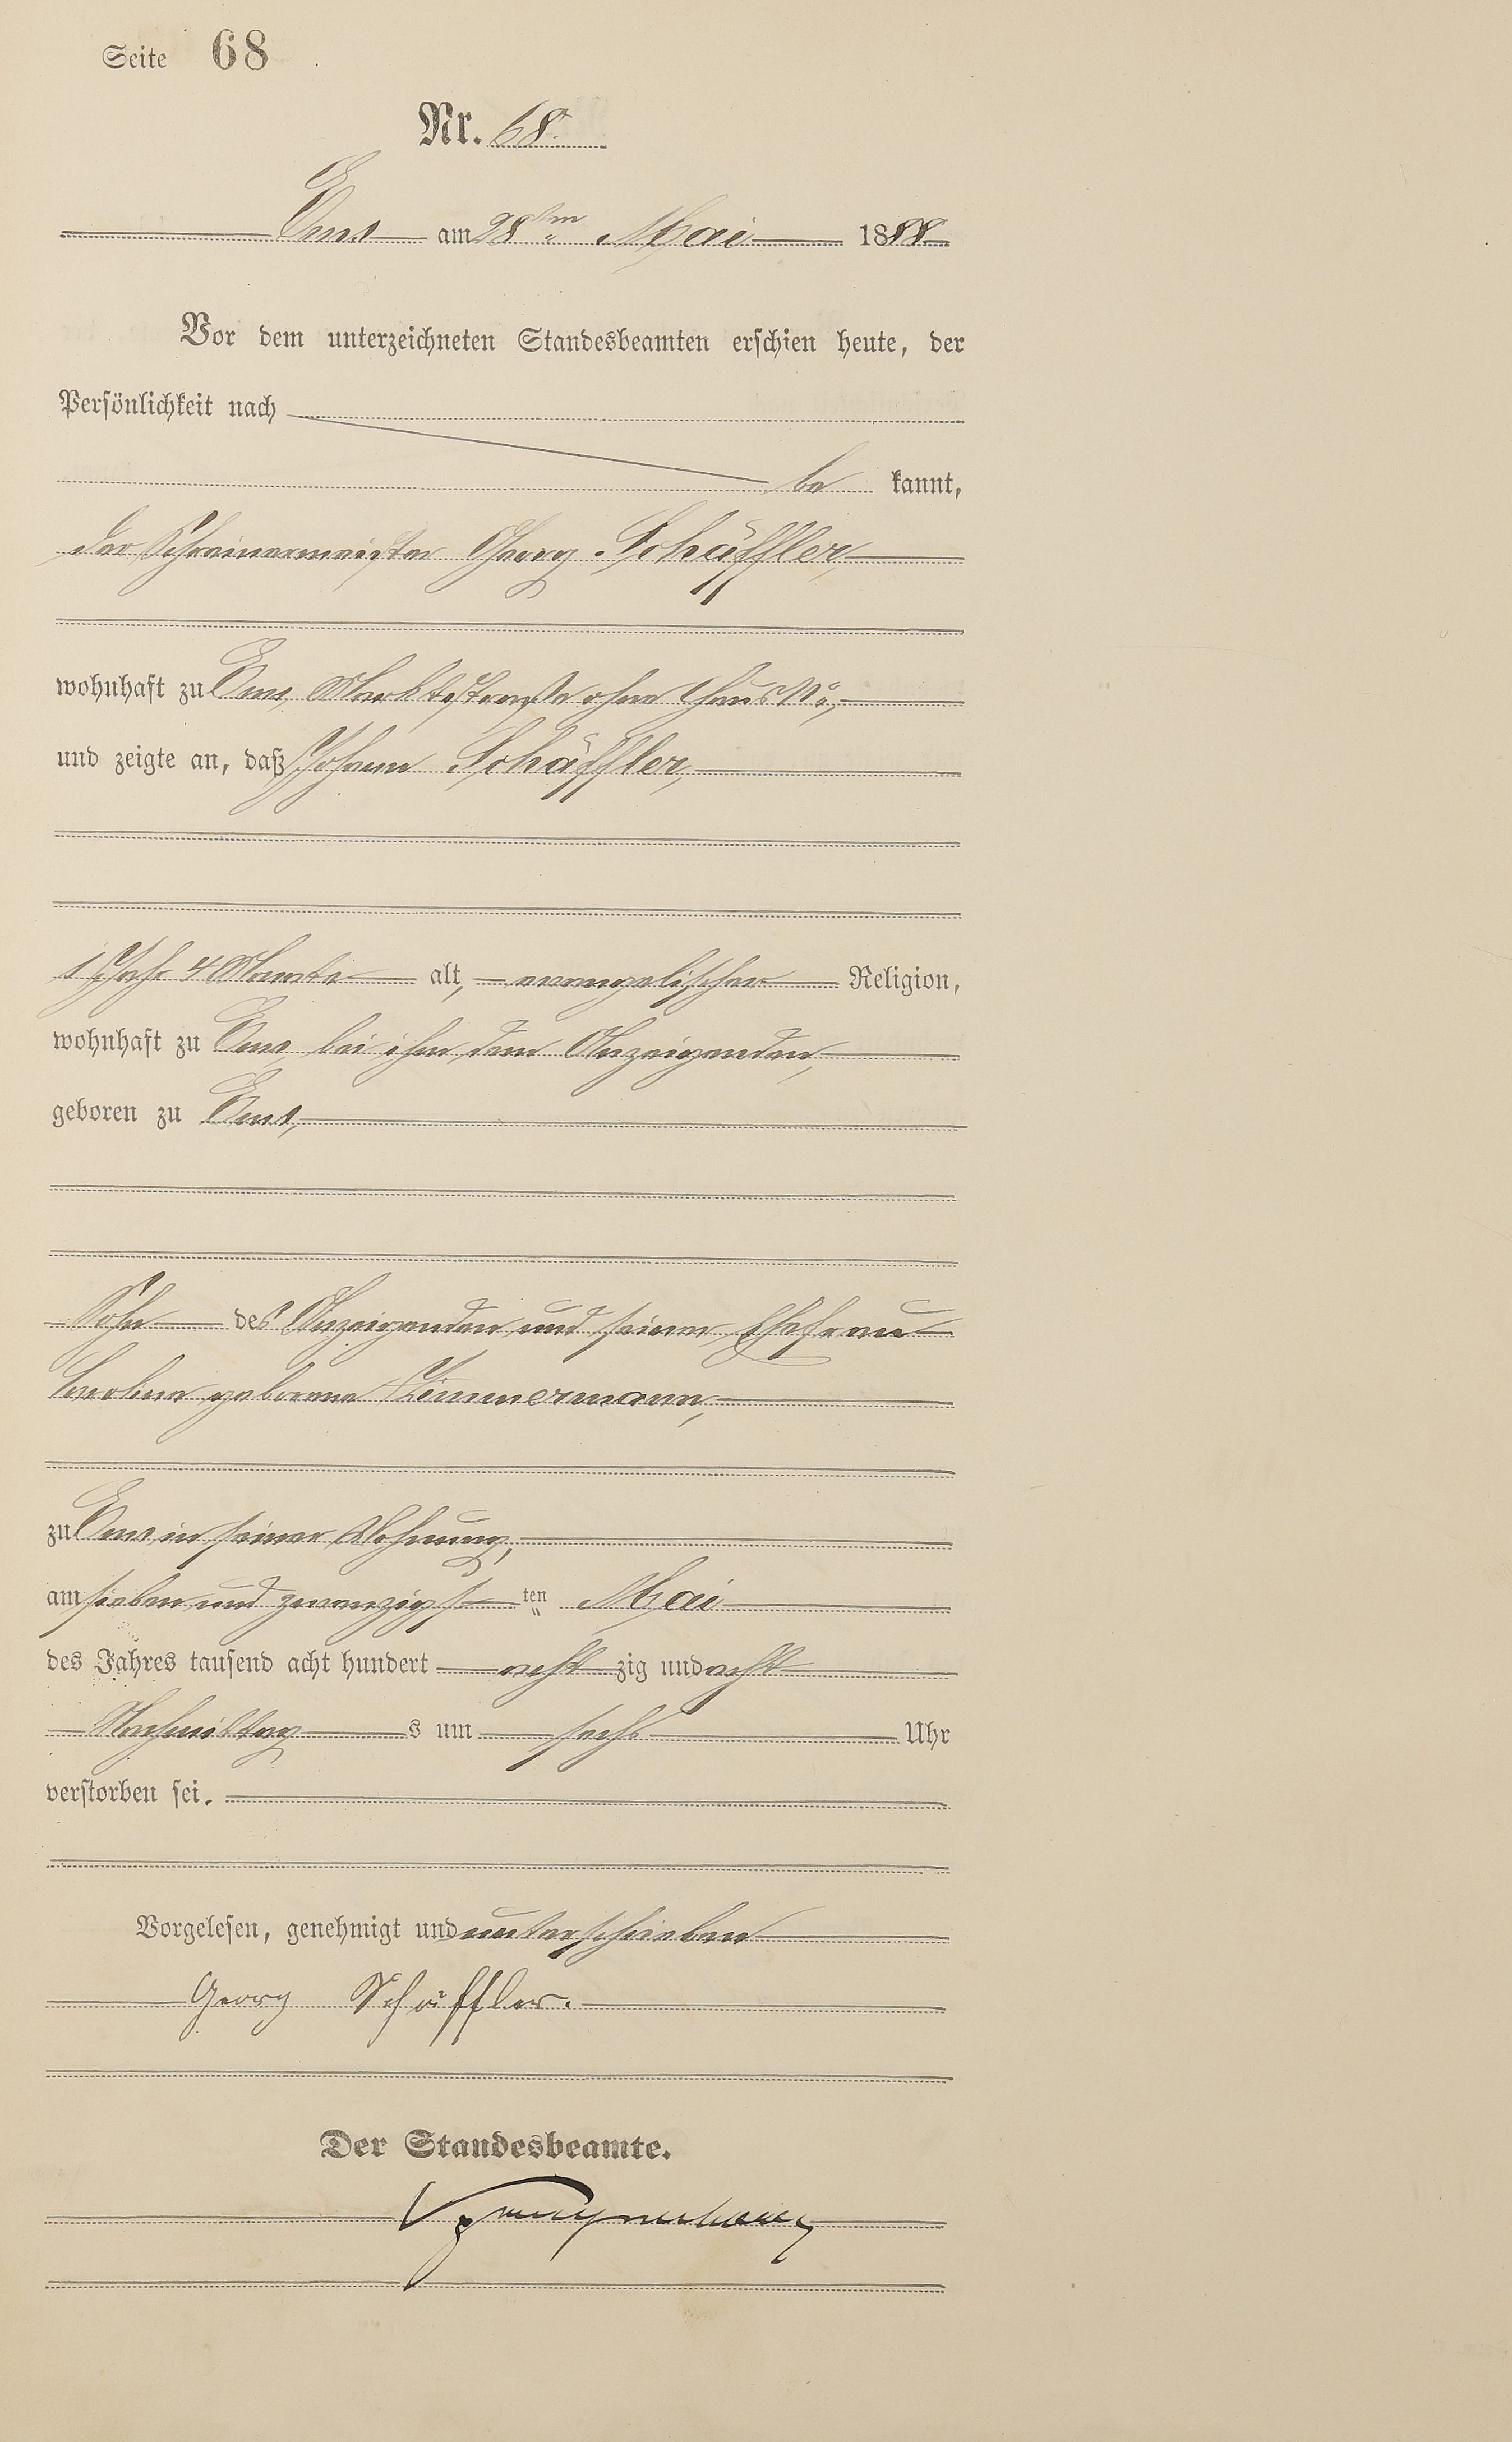 Seite 68
Nr. 68.
Ems am 28ten Mai 1888.
Vor dem unterzeichneten Standesbeamten erschien heute, der
Persönlichkeit nach
be kannt,
der Schreinermeister Georg Schäffler,
wohnhaft zu Ems, Marktstraße ohne Haus No,
und zeigte an, daß Johann Schäffler,
1 Jahr 4 Monate alt, evangelischer Religion,
wohnhaft zu Ems, bei ihm, dem Anzeigenden,
geboren zu Ems,
Sohn des Anzeigenden und seiner Ehefrau
geborene Zimmermann,
zu Ems in seiner Wohnung,
am sieben und zwanzigst ten Mai
des Jahres tausend acht hundert acht zig und acht
Nachmittag s um sechs Uhr
verstorben sei.
Vorgelesen, genehmigt und unterschrieben
Georg Schäffler.
Der Standesbeamte.